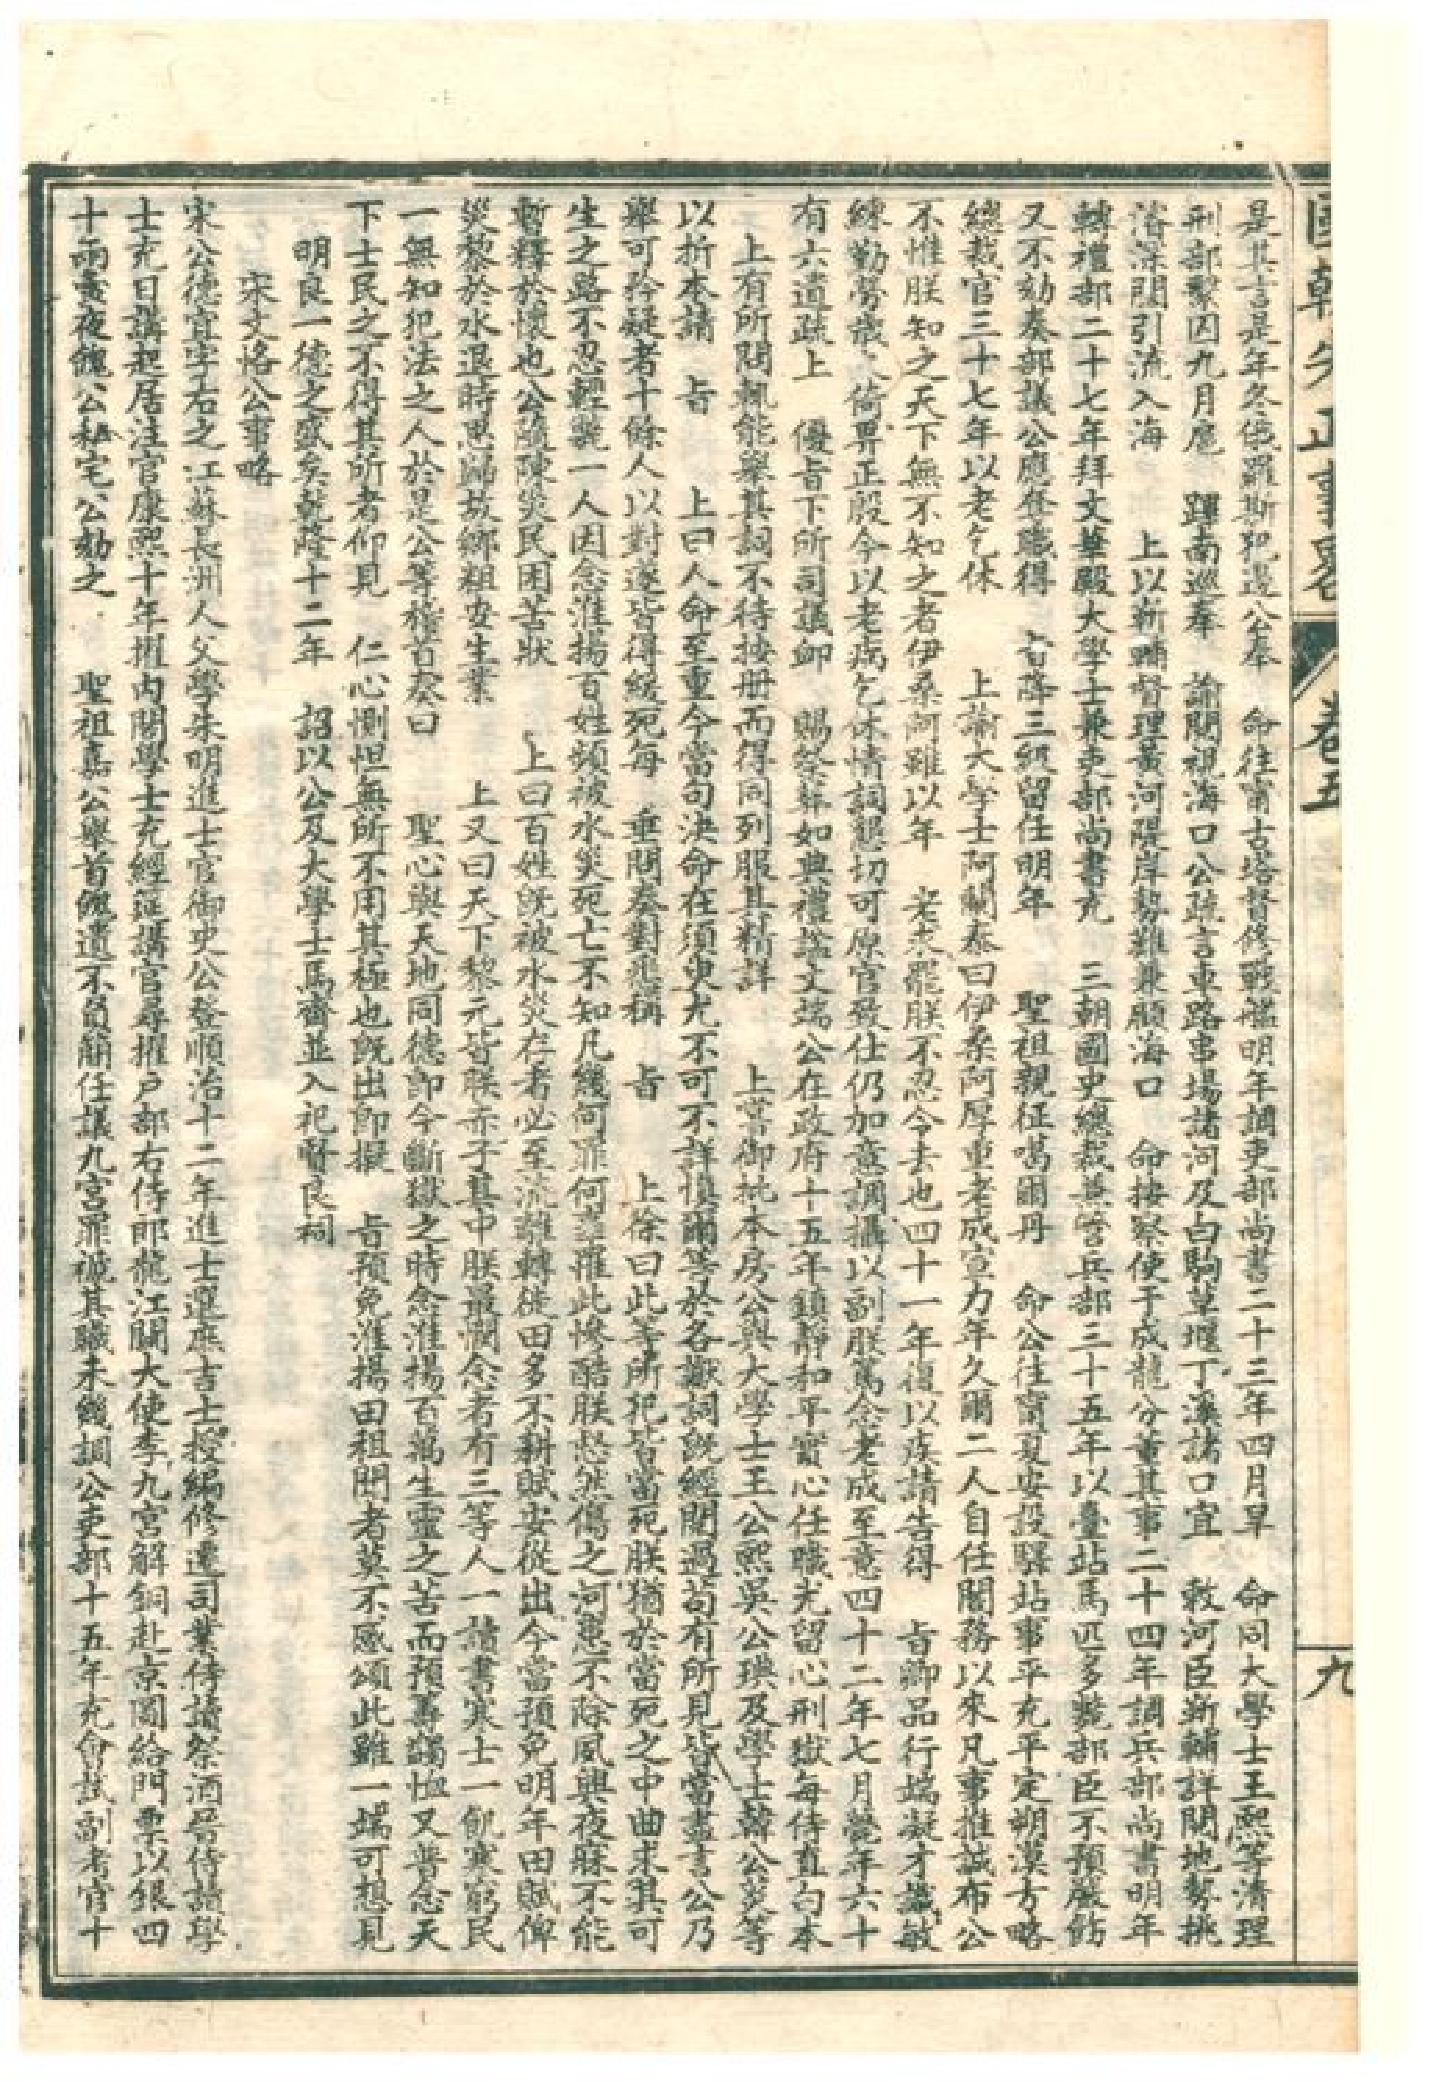 國朝先正事畧 卷五 九
是其言是年冬俄羅斯犯邊公奉 命往甯古塔督修戰艦明年調吏部尚書二十三年四月旱 命同大學士王熙等清理
刑部繫囚九月扈 蹕南巡奉 諭閱視海口公疏言車路串場諸河及白駒草堰丁溪諸口宜 敕河臣靳輔詳閱地勢挑
濬深闊引流入海 上以靳輔督理黃河隄岸勢難兼顧海口 命按察使于成龍分董其事二十四年調兵部尚書明年
轉禮部二十七年拜文華殿大學士兼吏部尚書充 三朝國史總裁兼管兵部三十五年以臺站馬匹多斃部臣不預嚴飭
又不劾奏部議公應登職得 旨降三級留任明年 聖祖親征噶爾丹 命公往甯夏安設驛站事平充平定朔漠方略
總裁官三十七年以老乞休 上諭大學士阿蘭泰曰伊桑阿厚重老成宣力年久爾二人自任閣務以來凡事推誠布公
不惟朕知之天下無不知之者伊桑阿雖以年 老求罷朕不忍令去也四十一年復以疾請告得 旨卿品行端凝才識敏
練勤勞歲久倚畀正殷今以老病乞休情詞懇切可原官致仕仍加意調攝以副朕篤念老成至意四十二年七月薨年六十
有六遺疏上 優旨下所司議卹 賜祭葬如典禮諡文端公在政府十五年鎮靜和平實心任職尤留心刑獄每侍直勾本
上有所問輒能舉其詞不待按册而得同列服其精詳 上嘗御批本房公與大學士王公熙吳公琠及學士韓公菼等
以折本請 旨 上曰人命至重今當句決命在須臾尤不可不詳愼爾等於各讞詞旣經閱過苟有所見皆當盡言公乃
舉可矜疑者十餘人以對遂皆得緩死每 垂問奏對悉稱 旨 上徐曰此等所犯皆當死朕猶於當死之中曲求其可
生之路不忍輕斃一人因念淮揚百姓頻被水災死亡不知凡幾何罪何辜罹此慘酷朕惄然傷之河患不除夙興夜寐不能
暫釋於懷也公隨陳災民困苦狀 上曰百姓旣被水災存者必至流離轉徙田多不耕賦安從出今當預免明年田賦俾
災黎於水退時思歸故鄉粗安生業 上又曰天下黎元皆朕赤子其中朕最憫念者有三等人一讀書寒士一飢寒窮民
一無知犯法之人於是公等稽首奏曰 聖心與天地同德卽今斷獄之時念淮揚百萬生靈之苦而預籌蠲恤又普念天
下士民之不得其所者仰見 仁心惻怛無所不用其極也旣出卽擬 旨預免淮揚田租聞者莫不感頌此雖一端可想見
明良一德之盛矣乾隆十二年 詔以公及大學士馬齊並入祀賢良祠
宋文恪公事略
宋公德宜字右之江蘇長洲人父學朱明進士官御史公登順治十二年進士選庶吉士授編修遷司業侍讀祭酒晉侍讀學
士充日講起居注官康熙十年擢内閣學士充經筵講官尋擢户部右侍郎龍江關大使李九官解銅赴京圖給門票以銀四
十兩夤夜餽公私宅公劾之 聖祖嘉公舉首餽遺不負簡任議九官罪褫其職未幾調公吏部十五年充會試副考官十